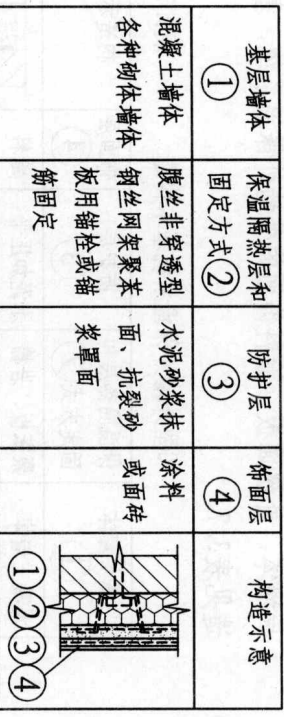 基层墙体
①
保温隔热层和
固定方式②
防护层
③
饰面层
④
构造示意
混凝土墙体
各种砌体墙体
腹丝非穿透型
钢丝网架聚苯
板用锚栓或锚
筋固定
水泥砂浆抹
面、抗裂砂
浆罩面
涂料
或面砖
①②③④